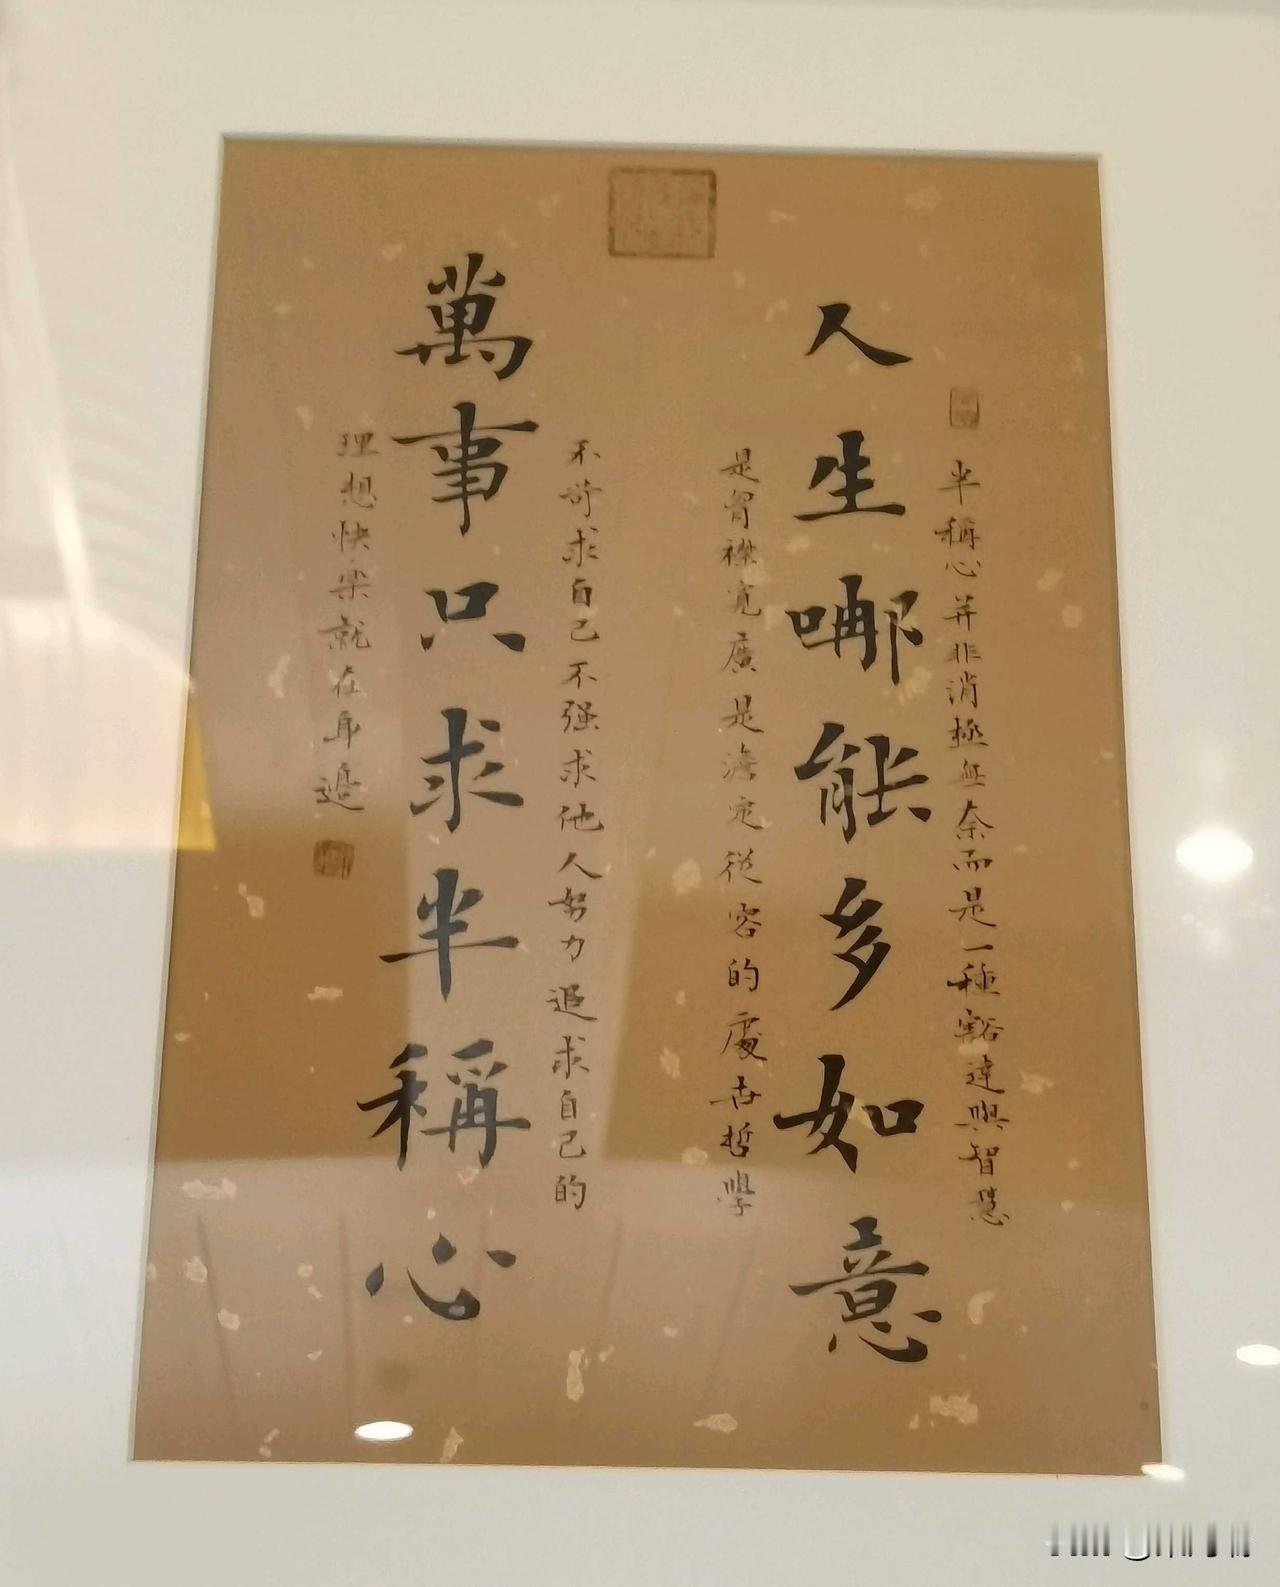 半稱心并非消極無奈而是一種豁達與智慧
人生哪能多如意
是胷襟寬廣是澹定從容的處古哲學
不苛求自己不强求他人努力追求自己的
萬事只求半稱心
理想快樂就在身邊